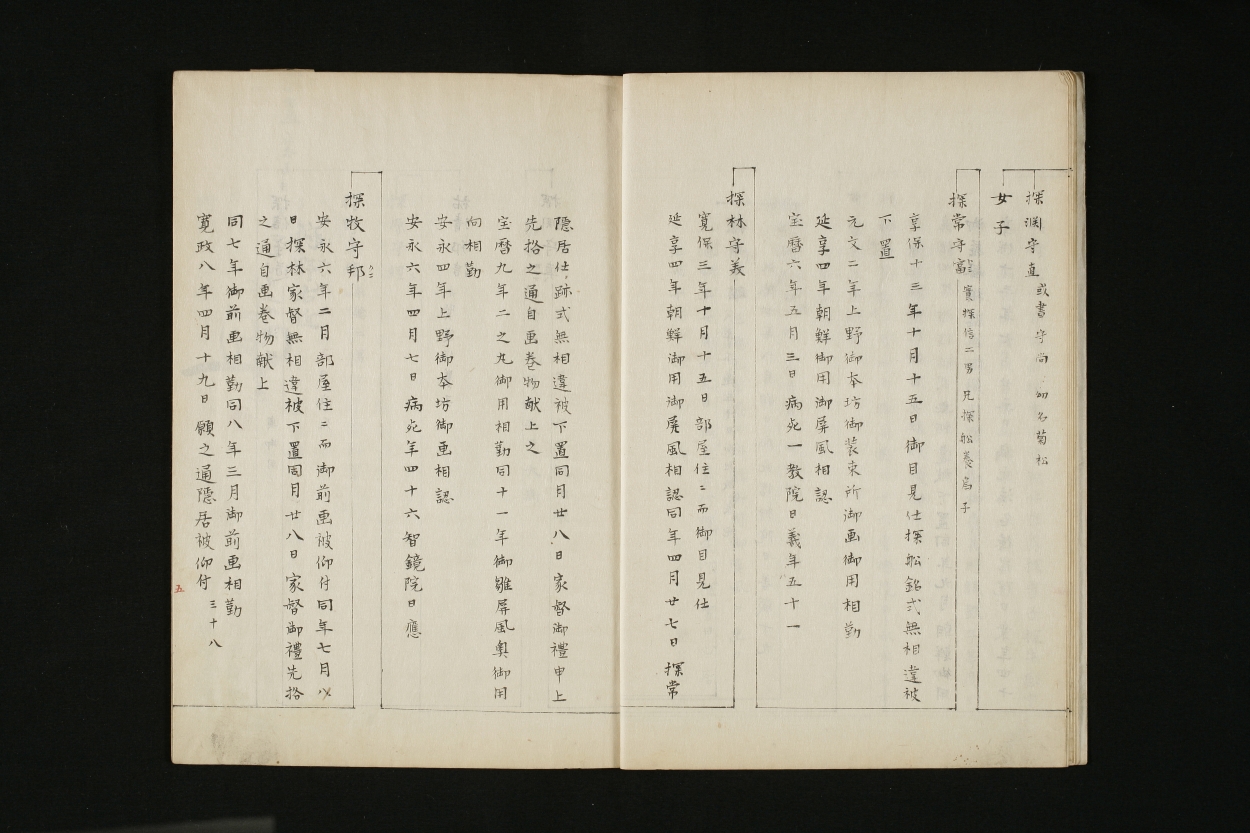 探渕守直 或書守尚 幼名菊松
女子
探常守富 実探信二男 兄探舩養為子
享保十三年十月十五日御目見仕探舩跡式無相違被
下置
元文二年上野御本坊御装束所御画御用相勤
延享四年朝鮮御用御屏風相認
宝暦六年五月三日病死一教院日義年五十一
探林守美
寛保三年十月十五日部屋住ニ而御目見仕
延享四年朝鮮御用御屏風相認同年四月廿七日探常
隠居仕跡式無相違被下置同月廿八日家督御禮申上
先格之通自画巻物献上之
宝暦九年二之丸御用相勤同十一年御雛屏風奥御用
向相勤
安永四年上野御本坊御画相認
安永六年四月七日病死年四十六智鏡院日應
探牧守邦 クニ
安永六年二月部屋住ニ而御前画被仰付同年七月八
日探林家督無相違被下置同月廿八日家督御禮先格
之通自画巻物献上
同七年御前画相勤同八年三月御前画相勤
寛政八年四月十九日願之通隠居被仰付 三十八
五